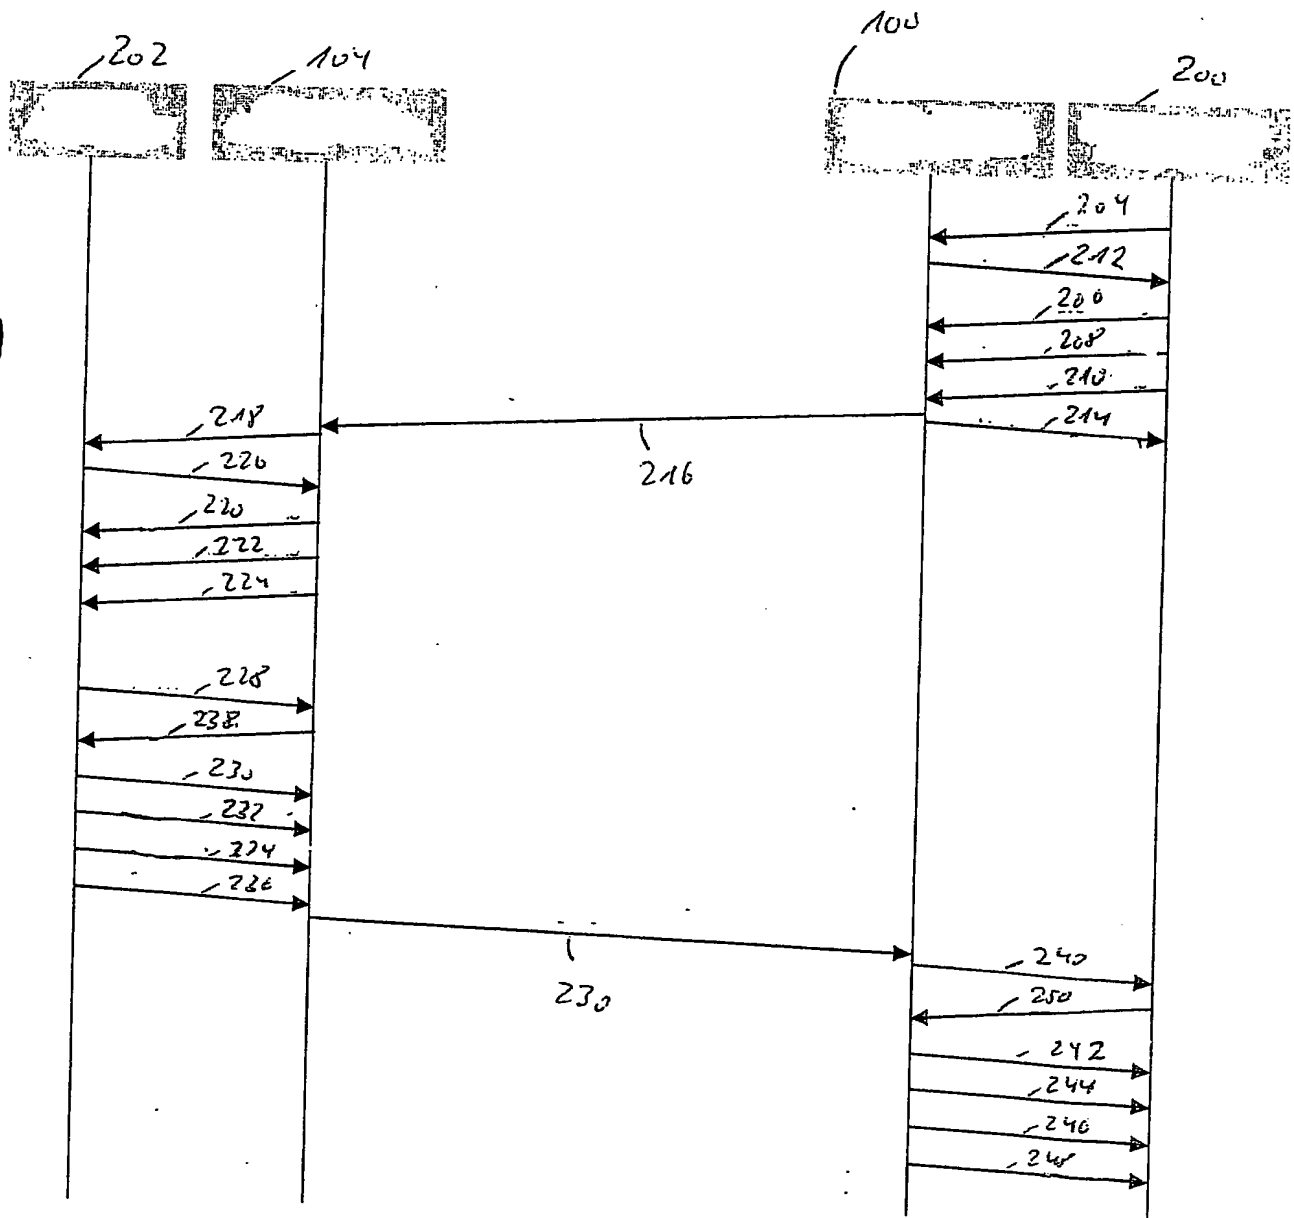 202
104
100
200
204
212
206
208
210
214
216
218
226
220
222
224
228
238
230
232
234
236
230
240
250
242
244
246
248